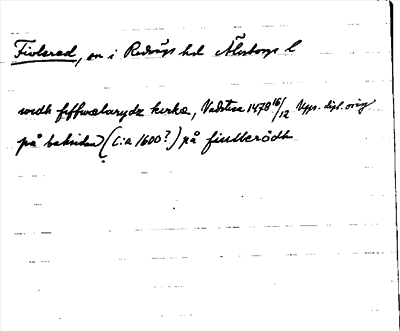 Fivlered, sn i Redvägs hd Älvsborgs l
wedh fiffwalarydz kirke, Vadstena 1478 16/12 Upps. dipl. orig
på baksidan (C:a 1600?) på fiullerödh